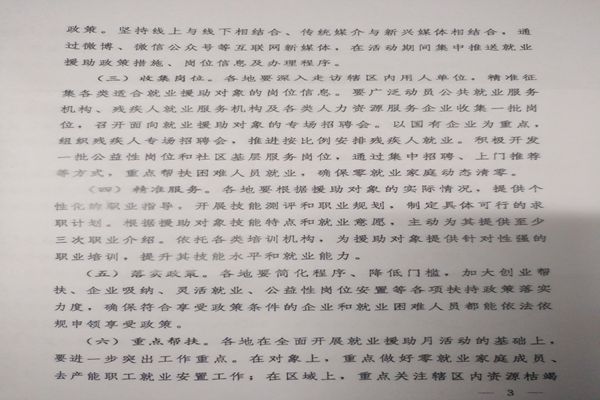 政策。坚持线上与线下相结合、传统媒介与新兴媒体相结合，通
过微博、微信公众号等互联网新媒体，在活动期间集中推送就业
援助政策措施、岗位信息及办理程序。
（三）收集岗位。各地要深入走访辖区内用人单位，精准征
集各类适合就业援助对象的岗位信息。要广泛动员公共就业服务
机构、残疾人就业服务机构及各类人力资源服务企业收集一批岗
位，召开面向就业援助对象的专场招聘会。以国有企业为重点，
组织残疾人专场招聘会，推进按比例安排残疾人就业。积极开发
一批公益性岗位和社区基层服务岗位，通过集中招聘、上门推荐
等方式，重点帮扶困难人员就业，确保零就业家庭动态清零。
（四）精准服务。各地要根据援助对象的实际情况，提供个
性化的职业指导，开展技能测评和职业规划，制定具体可行的求
职计划。根据援助对象技能特点和就业意愿，主动为其提供至少
三次职业介绍。依托各类培训机构，为援助对象提供针对性强的
职业培训，提升其技能水平和就业能力。
（五）落实政策。各地要简化程序、降低门槛，加大创业帮
扶、企业吸纳、灵活就业、公益性岗位安置等各项扶持政策落实
力度，确保符合享受政策条件的企业和就业困难人员都能依法依
规申领享受政策。
（六）重点帮扶。各地在全面开展就业援助月活动的基础上，
要进一步突出工作重点。在对象上，重点做好零就业家庭成员、
去产能职工就业安置工作；在区域上，重点关注辖区内资源枯竭
— 3 —